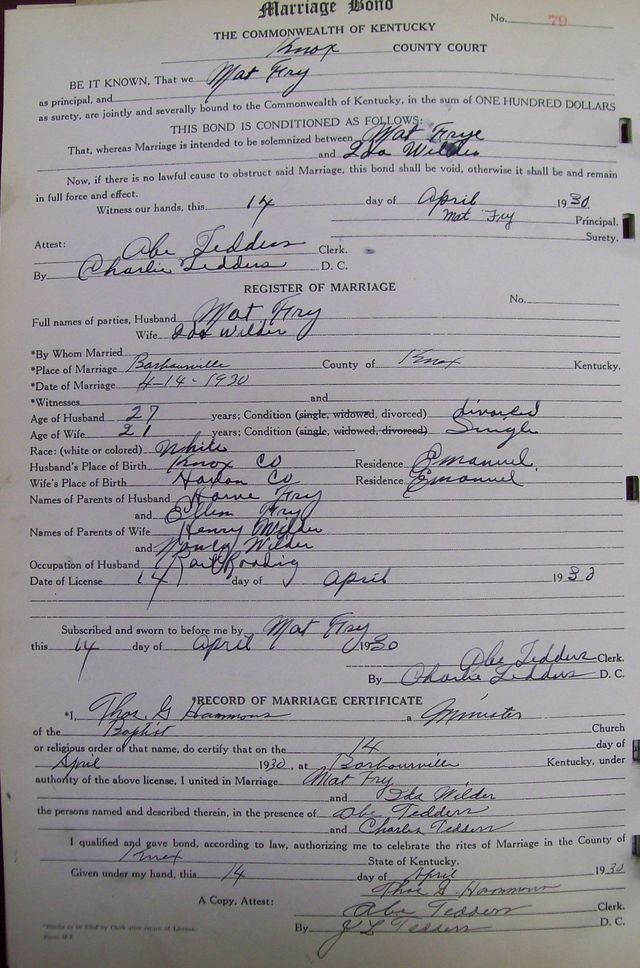 Marriage Bond
No. 79
THE COMMONWEALTH OF KENTUCKY
Knox COUNTY COURT
BE IT KNOWN, That we Mat Fry
as principal, and
as surety, are jointly and severally bound to the Commonwealth of Kentucky, in the sum of ONE HUNDRED DOLLARS
THIS BOND IS CONDITIONED AS FOLLOWS:
That, whereas Marriage is intended to be solemnized between Mat Frye
and Ida Wilder
Now, if there is no lawful cause to obstruct said Marriage, this bond shall be void, otherwise it shall be and remain
in full force and effect.
Witness our hands, this 14 day of April 1930
Mat Fry Principal.
Surety.
Attest: Abe Tedders Clerk.
By Charlie Tedders D. C.
REGISTER OF MARRIAGE
No.
Full names of parties, Husband Mat Fry
Wife Ida Wilder
*By Whom Married
*Place of Marriage Barbourville County of Knox Kentucky.
*Date of Marriage 4-14-1930
*Witnesses and
Age of Husband 27 years; Condition (single, widowed, divorced) divorced
Age of Wife 21 years; Condition (single, widowed, divorced) Single
Race: (white or colored) White
Husband's Place of Birth Knox Co Residence Emanuel,
Wife's Place of Birth Harlan Co Residence Emanuel
Names of Parents of Husband Harve Fry
and Ellen Fry
Names of Parents of Wife Henry Wilder
and Nancy Wilder
Occupation of Husband Rail Roading
Date of License 14 day of April 1930
Subscribed and sworn to before me by Mat Fry
this 14 day of April 1930
Abe Tedders Clerk.
By Charlie Tedders D. C.
*RECORD OF MARRIAGE CERTIFICATE
*I, Thos. G Hammons a Minister
of the Baptist Church
or religious order of that name, do certify that on the 14 day of
April 1930, at Barbourville Kentucky, under
authority of the above license, I united in Marriage Mat Fry
and Ida Wilder
the persons named and described therein, in the presence of Abe Tedders
and Charlie Tedders
I qualified and gave bond, according to law, authorizing me to celebrate the rites of Marriage in the County of
Knox State of Kentucky.
Given under my hand, this 14 day of April 1930
Thos G. Hammons
A Copy, Attest: Abe Tedders Clerk.
By J L Tedders D. C.
*Blanks to be filled by Clerk after return of License.